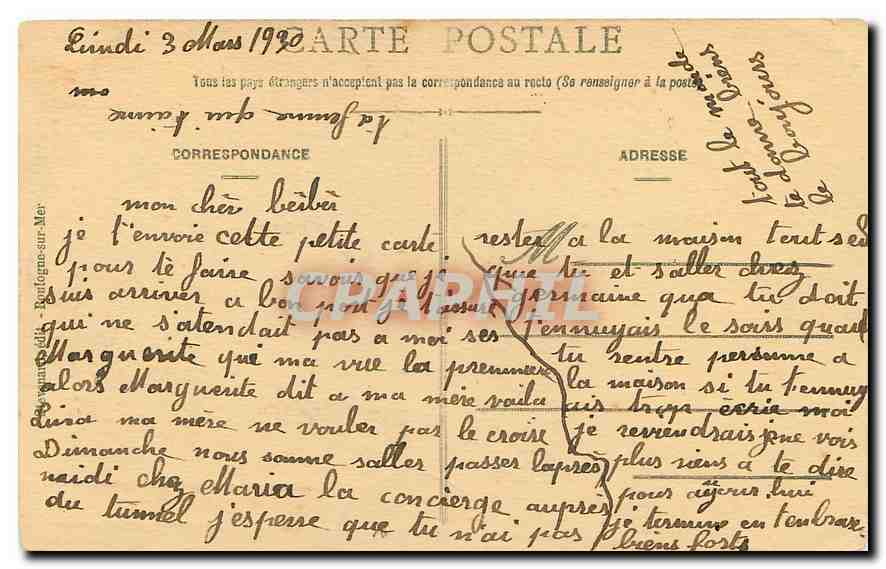 Lundi 3 Mars 1930
CARTE POSTALE
Tous les pays étrangers n'acceptent pas la correspondance au recto (Se renseigner à la poste)
CORRESPONDANCE
ADRESSE
mon chér béibéi
je t'envoie cette petite carte
pour té faire savoir que je
suis arriver a bon port je t'assure
qui ne s'atendait pas a moi ses
Marguerite qui ma vue la premmière
alors Marguerite dit a ma mère voila
Lina ma mère ne vouler pas le croise
Dimanche nous somme saller passer laprès
midi chez Maria la concierge auprès
du tunnel j'esperre que tu n'ai pas
rester a la maison tout seul
que tu et saller chez
germaine qua tu doit
t'ennuyais le soirs quant
tu rentre persumne a
la maison si tu t'ennuy
ais trop écrie moi
je reviendrais je ne vois
plus riens a te dire
pour aujourd'hui
je termine en t'enbrasse
biens forts
ta femme qui t'aime
tout le monde
te donne biens
le bonjours
Stévenard, édit. - Boulogne-sur-Mer
CPAPHIL